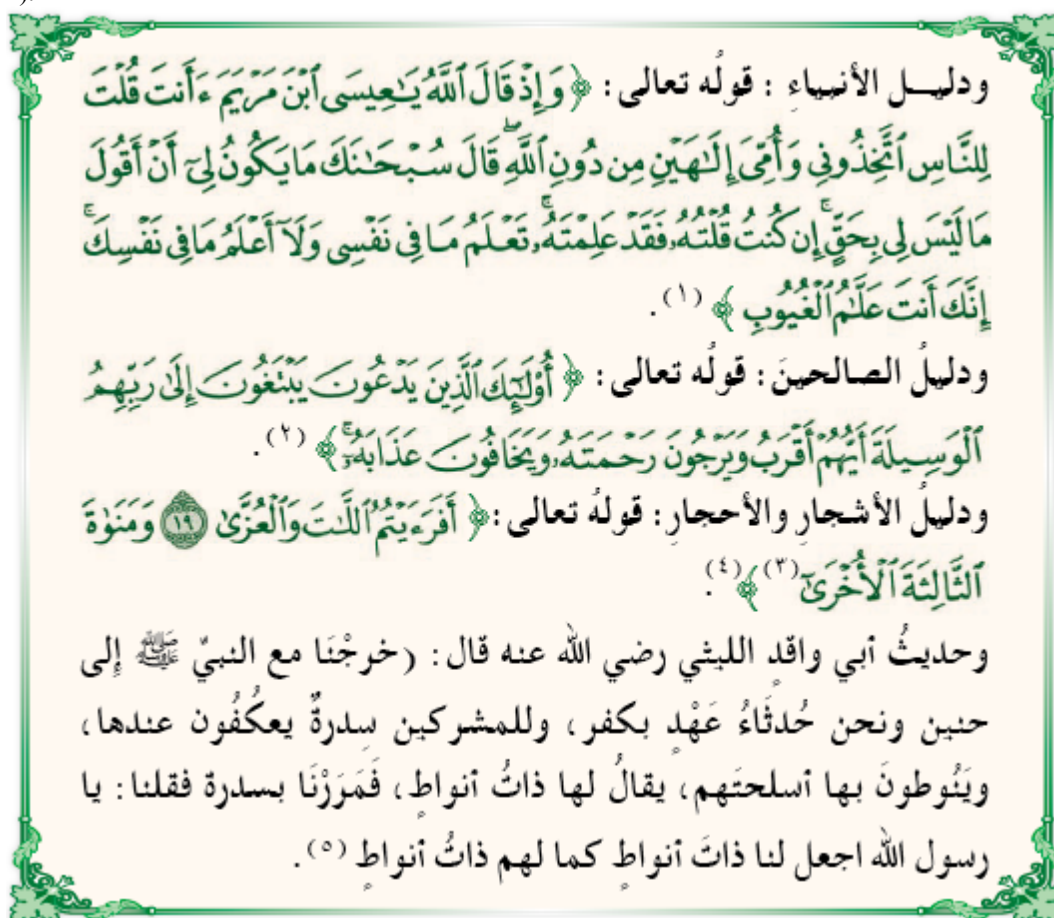 ودليل الأنبياء : قولُه تعالى : ﴿ وَإِذْ قَالَ ٱللَّهُ يَٰعِيسَى ٱبْنَ مَرْيَمَ ءَأَنتَ قُلْتَ
لِلنَّاسِ ٱتَّخِذُونِى وَأُمِّىَ إِلَٰهَيْنِ مِن دُونِ ٱللَّهِۖ قَالَ سُبْحَٰنَكَ مَا يَكُونُ لِىٓ أَنْ أَقُولَ
مَا لَيْسَ لِى بِحَقٍّۚ إِن كُنتُ قُلْتُهُۥ فَقَدْ عَلِمْتَهُۥۚ تَعْلَمُ مَا فِى نَفْسِى وَلَآ أَعْلَمُ مَا فِى نَفْسِكَۚ
إِنَّكَ أَنتَ عَلَّٰمُ ٱلْغُيُوبِ ﴾ (١) .
ودليلُ الصالحينَ : قولُه تعالى : ﴿ أُوْلَٰٓئِكَ ٱلَّذِينَ يَدْعُونَ يَبْتَغُونَ إِلَىٰ رَبِّهِمُ
ٱلْوَسِيلَةَ أَيُّهُمْ أَقْرَبُ وَيَرْجُونَ رَحْمَتَهُۥ وَيَخَافُونَ عَذَابَهُۥٓۚ ﴾ (٢) .
ودليلُ الأشجارِ والأحجارِ : قولهُ تعالى : ﴿ أَفَرَءَيْتُمُ ٱللَّٰتَ وَٱلْعُزَّىٰ ١٩ وَمَنَوٰةَ
ٱلثَّالِثَةَ ٱلْأُخْرَىٰٓ (٣) ﴾ (٤) .
وحديثُ أبي واقدٍ الليثي رضي الله عنه قال : (خرجْنَا مع النبيّ ﷺ إِلى
حنين ونحن حُدثَاءُ عَهْدٍ بكفر ، وللمشركين سِدرةٌ يعكُفُون عندها ،
ويَنُوطونَ بها أسلحتَهم ، يقالُ لها ذاتُ أنواطٍ ، فَمَرَرْنَا بسدرة فقلنا : يا
رسول الله اجعل لنا ذاتَ أنواطٍ كما لهم ذاتُ أنواطٍ (٥) .